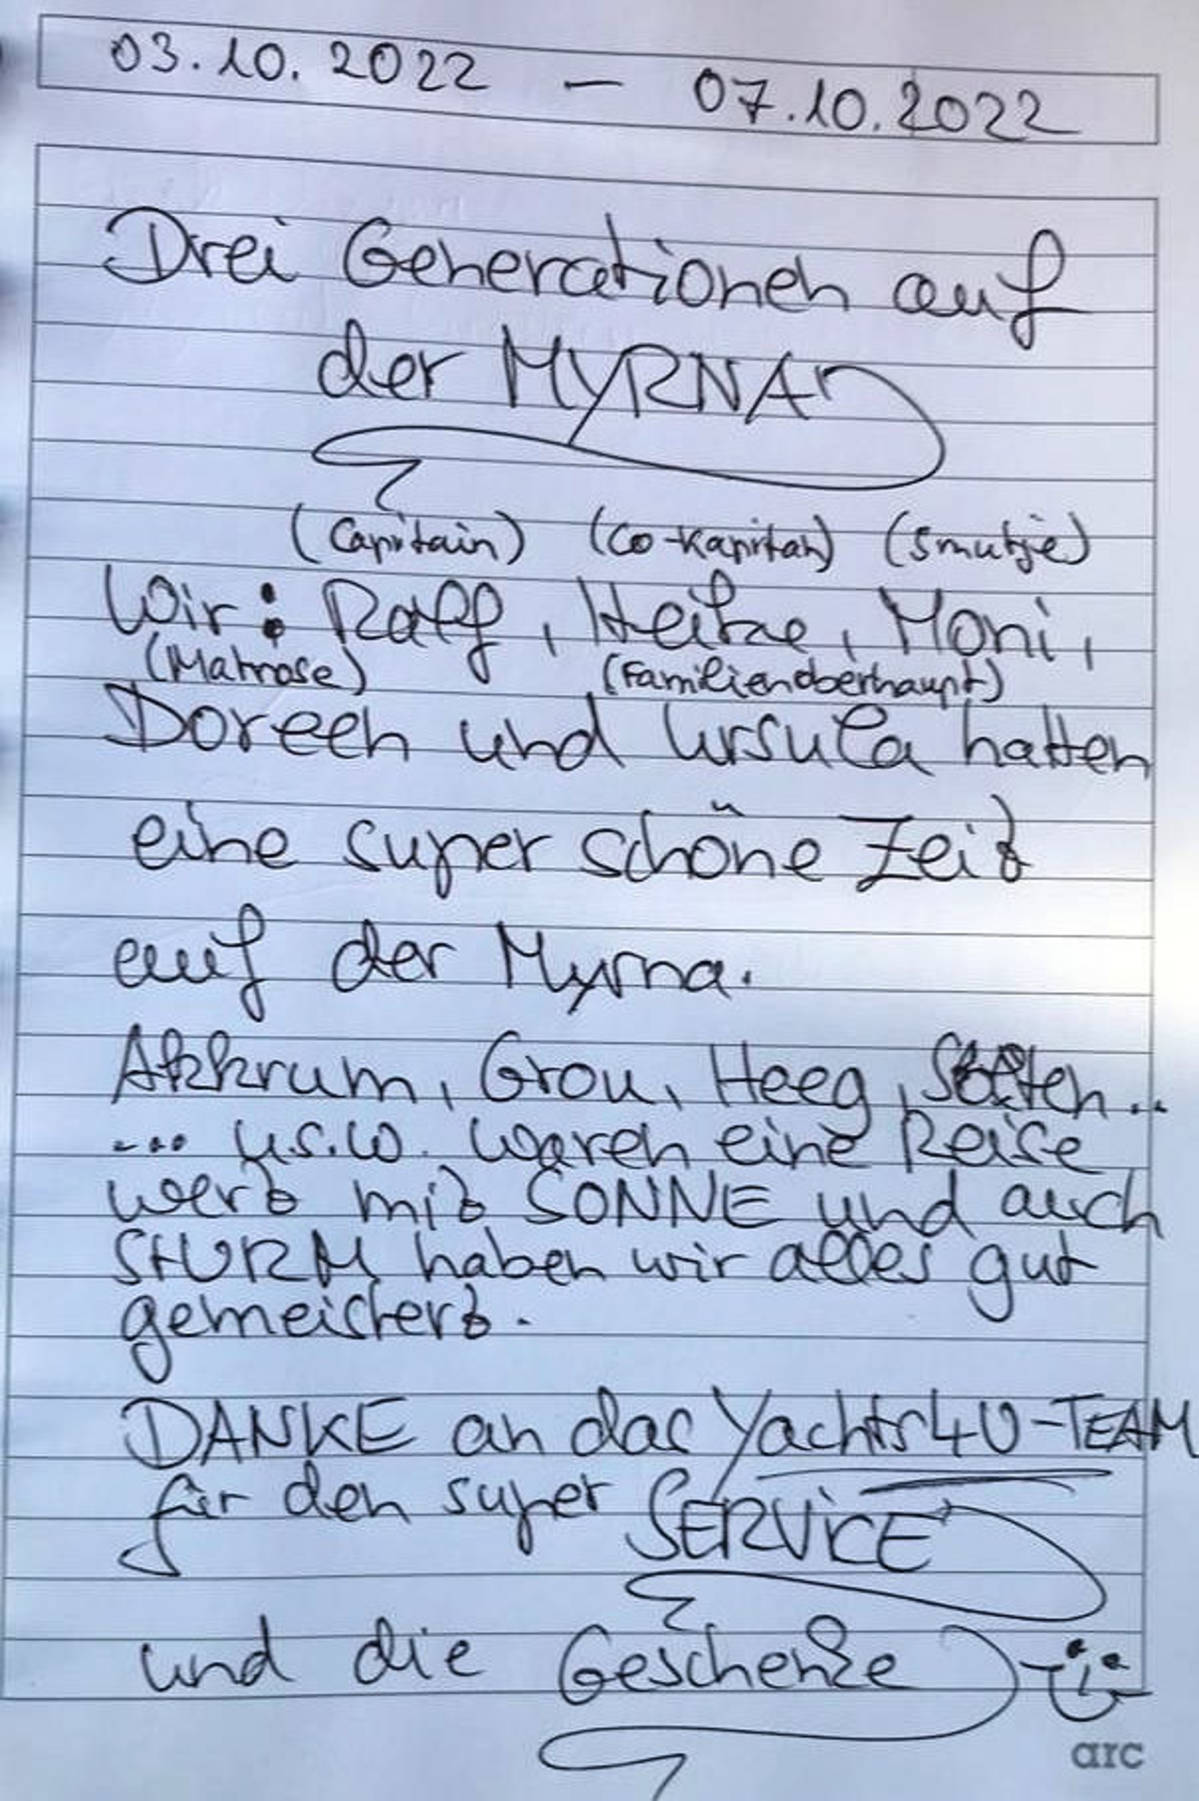 03.10.2022 — 07.10.2022
Drei Generationen auf
der MYRNA
(Capitain) (Co-Kapitän) (Smutje)
Wir: Ralf, Heike, Moni,
(Matrose) (Familienoberhaupt)
Doreen und Ursula hatten
eine super schöne Zeit
auf der Myrna.
Akkrum, Grou, Heeg, Sloten..
... u.s.w. waren eine Reise
wert mit SONNE und auch
STURM haben wir alles gut
gemeistert.
DANKE an das Yachts4U-TEAM
für den super SERViCE
und die Geschenke
arc